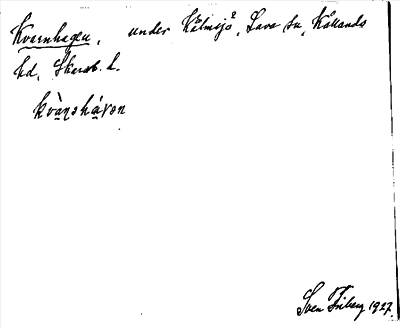 Kvarnhagen, under Kålmsjö, Lava sn, Kållands
hd, Skarab. l.
kvà̱ṇshá̱vən
Sven Friberg 1927.